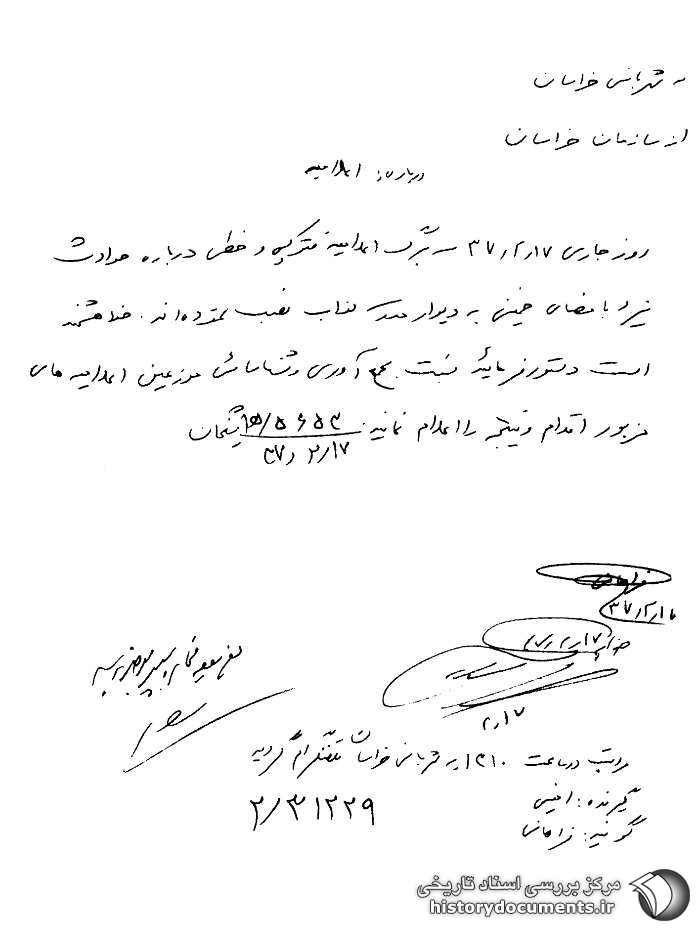 به شهربانی خراسان
از سازمان خراسان
درباره: اعلامیه
روز جاری ۳۷/۲/۱۷ سه برگ اعلامیه فتوکپی و خطی درباره حوادث
نیز با مضای خمینی به دیوار مدرسه نواب نصب نموده‌اند. خواهشمند
است دستور فرمائید نسبت بجمع آوری و شناسائی موزعین اعلامیه های
مزبور اقدام و نتیجه را اعلام نمایند. ۵۶۵۳/ﻫ۱ شیخان
۳۷/۲/۱۷
۳۷/۲/۱۷
۲/۱۷
مراتب در ساعت ۱۳۱۰ به شهربانی خراسان تلفنگرام گردید
گیرنده: انیسی
گوینده: فراهانی
۲/۳۱۲۲۹
مرکز بررسی اسناد تاریخی
historydocuments.ir